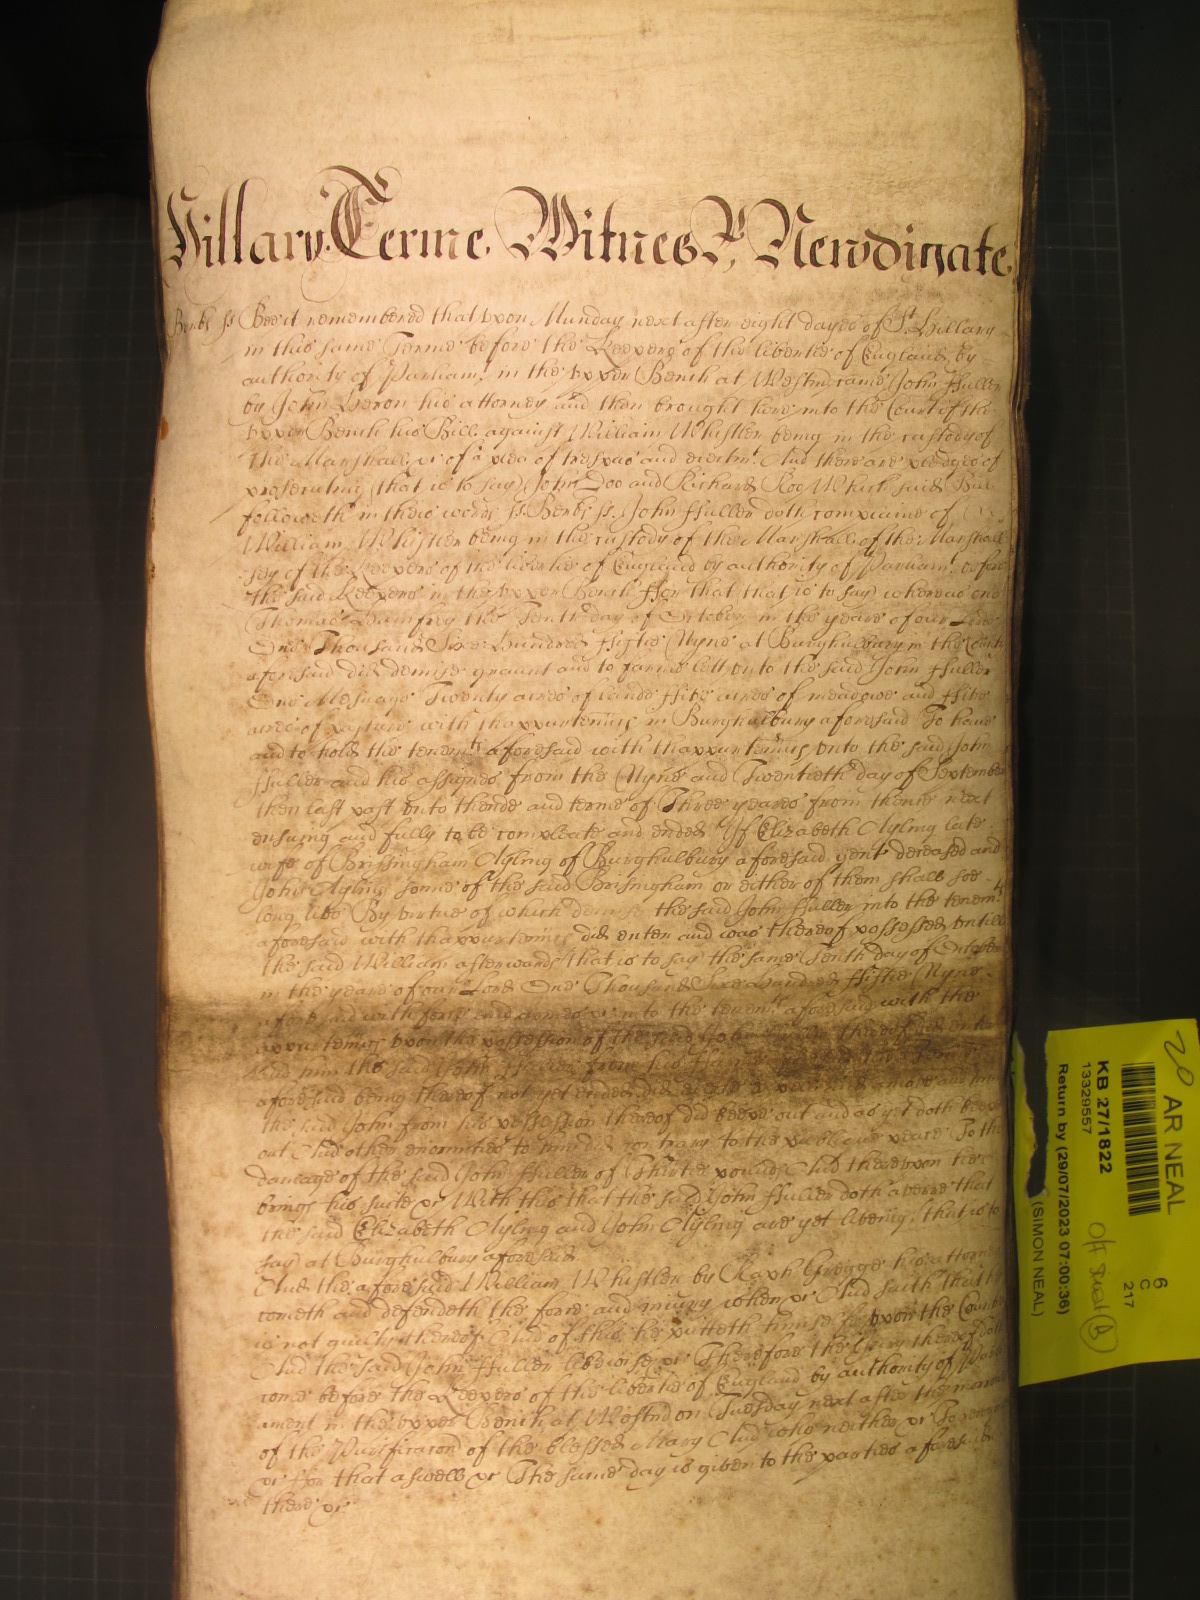 Hillary Terme Witnes R, Newdigate
Berks ss Bee it remembred that vpon Munday next after eight dayes of St. Hillary
in this same Terme before the Keepers of the libertie of England by
authority of Parliamt. in the vpper Bench at Westmr. came John ffuller
by John Heron his attorney and then brought here into the Court of the
vpper Bench his Bill against William Whistler being in the custody of
the Marshall &c of a plea of trespas and eiectmt. And there are pledges of
prosecuting (that is to say) John Doo and Richard Roo Which said Bill
followeth in these words ss. Berks ss. John ffuller doth complaine of
William Whistler being in the custody of the Marshall of the Marshall
sey of the Keepers of the libertie of England by authority of Parliamt. before
the said Keepers in the vpper Bench ffor that that is to say whereas one
Thomas Humfrey the Tenth day of October in the yeare of our Lord
One Thousand Sixe Hundred ffiftie Nyne at Burghulbury in the County
aforesaid did demise graunt and to farme lett vnto the said John ffuller
One Mesuage Twenty acres of lande ffive acres of meadowe and ffive
acres of pasture with thappurtenncs in Burghulbury aforesaid To have
and to hold the tenemts aforesaid with thappurtenncs vnto the said John
ffuller and his assignes from the Nyne and Twentieth day of September
then last past vnto thende and terme of Three yeares from thence next
ensuing and fully to be compleate and ended If Elizabeth Ayling late
wife of Brissingham Ayling of Burghulbury aforesaid gent deceased and
John Ayling sonne of the said Brisingham or either of them shall soe
long live By virtue of which demise the said John ffuller into the tenemts
aforesaid with thappurtenncs did enter and was thereof possessed vntill
the said William afterwards (that is to say) the same Tenth day of October
in the yeare of our Lord One Thousand Sixe Hundred ffiftie Nyne
aforesaid with force and armes &c into the tenemts aforesaid with the
appurtenncs vpon the possession of the said John ffuller thereof did enter
And him the said John ffuller from his
aforesaid being thereof not yet ended did and him
the said John from his possession thereof did keepe out and as yet doth keepe
out And other enormities to him did contrary to the publique peace To the
damage of the said John ffuller of Thirtie pounds And therevpon hee
brings his suite &c With this that the said John ffuller doth averre that
the said Elizabeth Ayling and John Ayling are yet liveing (that is to
say) at Burghulbury aforesaid
And the aforesaid William Whistler by Raph Gregge his attorney
cometh and defendeth the force and iniury when &c And saith that he
is not guilty thereof And of this he putteth himselfe vpon the Country
And the said John ffuller likewise &c Therefore the Jury thereof doth
come before the Keepers of the libertie of England by authority of Parli
ament in the vpper Bench at Westmr on Tuesday next after the morrow
of the Purificacon of the blessed Mary And who neither &c To recogn
&c ffor that aswell &c The same day is given to the parties aforesaid
there &c
20 AR NEAL
KB 27/1822
13329557
Return by (29/07/2023 07:00:36)
(SIMON NEAL)
6
C
217